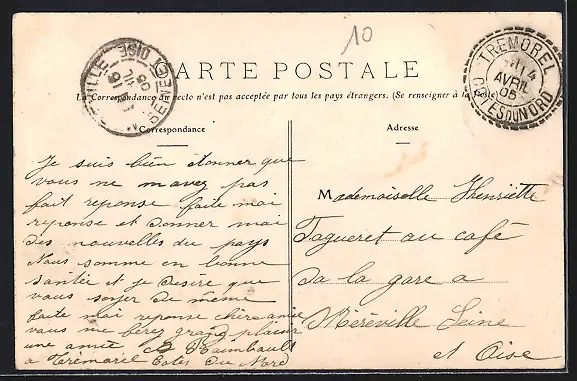 10
CARTE POSTALE
La Correspondance au recto n'est pas acceptée par tous les pays étrangers. (Se renseigner à la Poste)
MÉRÉVILLE
SEINE-ET-OISE
16
AVRIL
05
TREMOREL
14
AVRIL
05
COTES DU NORD
Correspondance
Je suis bien étonner que
vous ne mavez pas
fait reponse faite moi
reponse et donner moi
des nouvelles du pays
Nous somme en bonne
santée et je désire que
vous soyer de même
faite moi reponse chère amie
vous me ferez grand plaisir
une amie Raimbault
a Trémorel Cotes du Nord
Adresse
Mademoiselle Henriette
Tagueret au café
da la gare a
Méréville Seine
et Oise